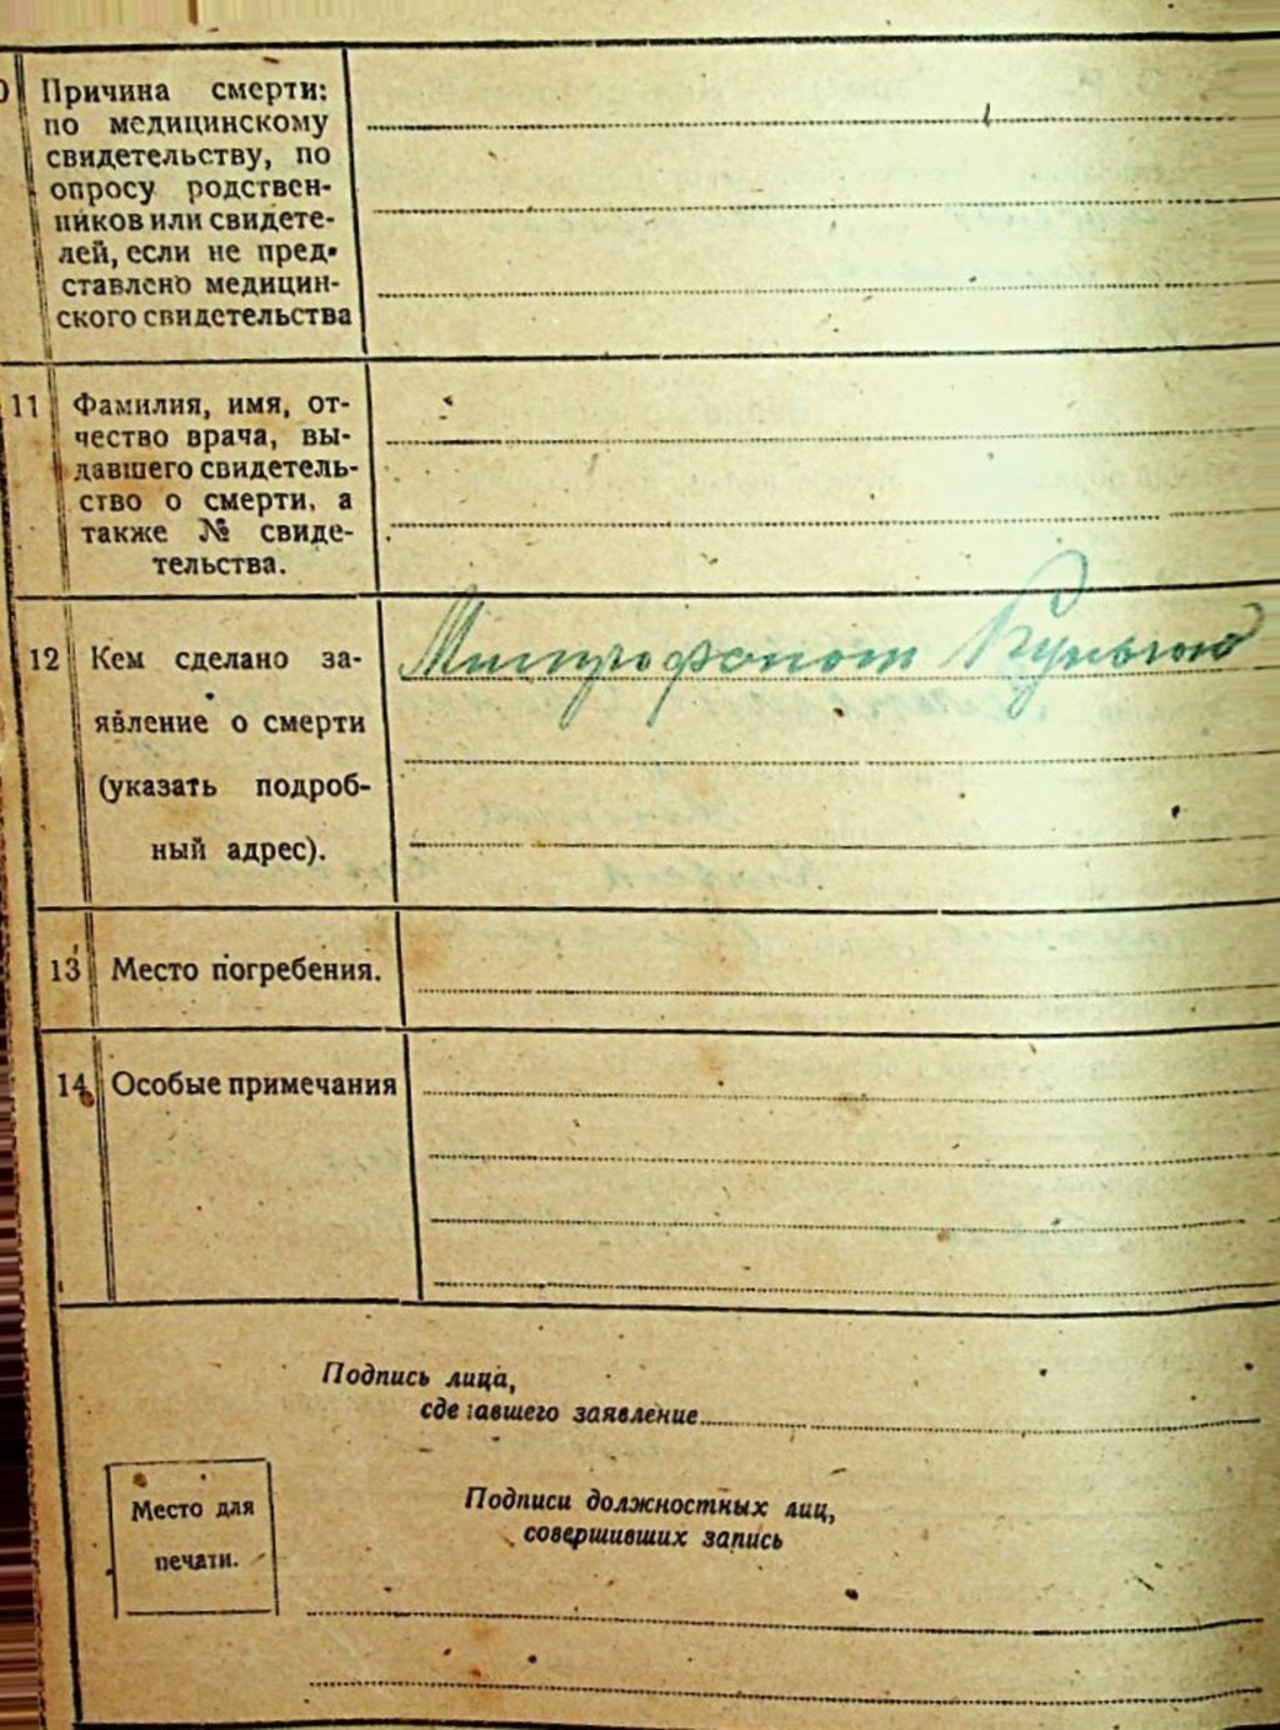 Причина смерти:
по медицинскому
свидетельству, по
опросу родствен-
ников или свидете-
лей, если не пред-
ставлено медицин-
ского свидетельства
11 Фамилия, имя, от-
чество врача, вы-
давшего свидетель-
ство о смерти, а
также № свиде-
тельства.
12 Кем сделано за- Митрофаном
явление о смерти
(указать подроб-
ный адрес).
13 Место погребения.
14 Особые примечания
Подпись лица,
сделавшего заявление
Место для
печати.
Подписи должностных лиц,
совершивших запись